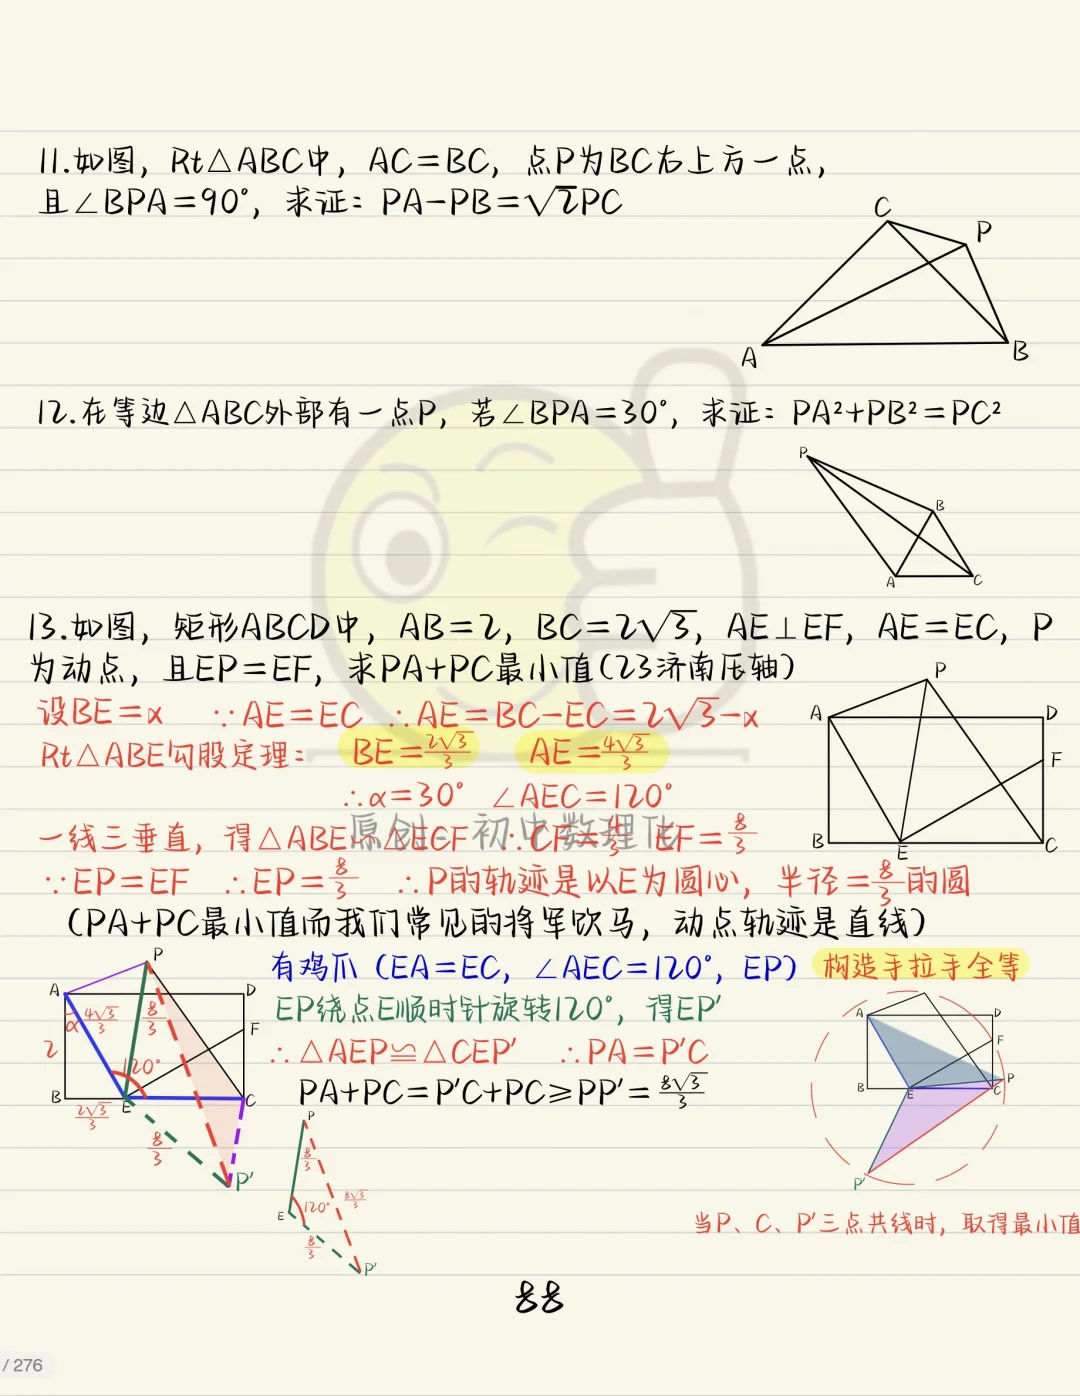 11.如图，Rt△ABC中，AC=BC，点P为BC右上方一点，
且∠BPA=90°，求证：PA-PB=√2PC
C
P
A
B
12.在等边△ABC外部有一点P，若∠BPA=30°，求证：PA²+PB²=PC²
P
B
A
C
13.如图，矩形ABCD中，AB=2，BC=2√3，AE⊥EF，AE=EC，P
为动点，且EP=EF，求PA+PC最小值(23济南压轴)
P
A
D
F
B
E
C
设BE=x ∵AE=EC ∴AE=BC-EC=2√3-x
Rt△ABE勾股定理： BE=2√3/3 AE=4√3/3
∴α=30° ∠AEC=120°
原创 初中数理化
一线三垂直，得△ABE∽△ECF ∴CF=4/3 EF=8/3
∵EP=EF ∴EP=8/3 ∴P的轨迹是以E为圆心，半径=8/3的圆
(PA+PC最小值而我们常见的将军饮马，动点轨迹是直线)
有鸡爪（EA=EC，∠AEC=120°，EP） 构造手拉手全等
EP绕点E顺时针旋转120°，得EP′
∴△AEP≌△CEP′ ∴PA=P′C
PA+PC=P′C+PC≥PP′=8√3/3
P
A
D
α
4√3/3
8/3
F
2
120°
B
E
C
2√3/3
8/3
P′
P
8/3
8√3/3
E
120°
8/3
P′
A
D
F
P
B
E
C
P′
当P、C、P′三点共线时，取得最小值
88
/ 276